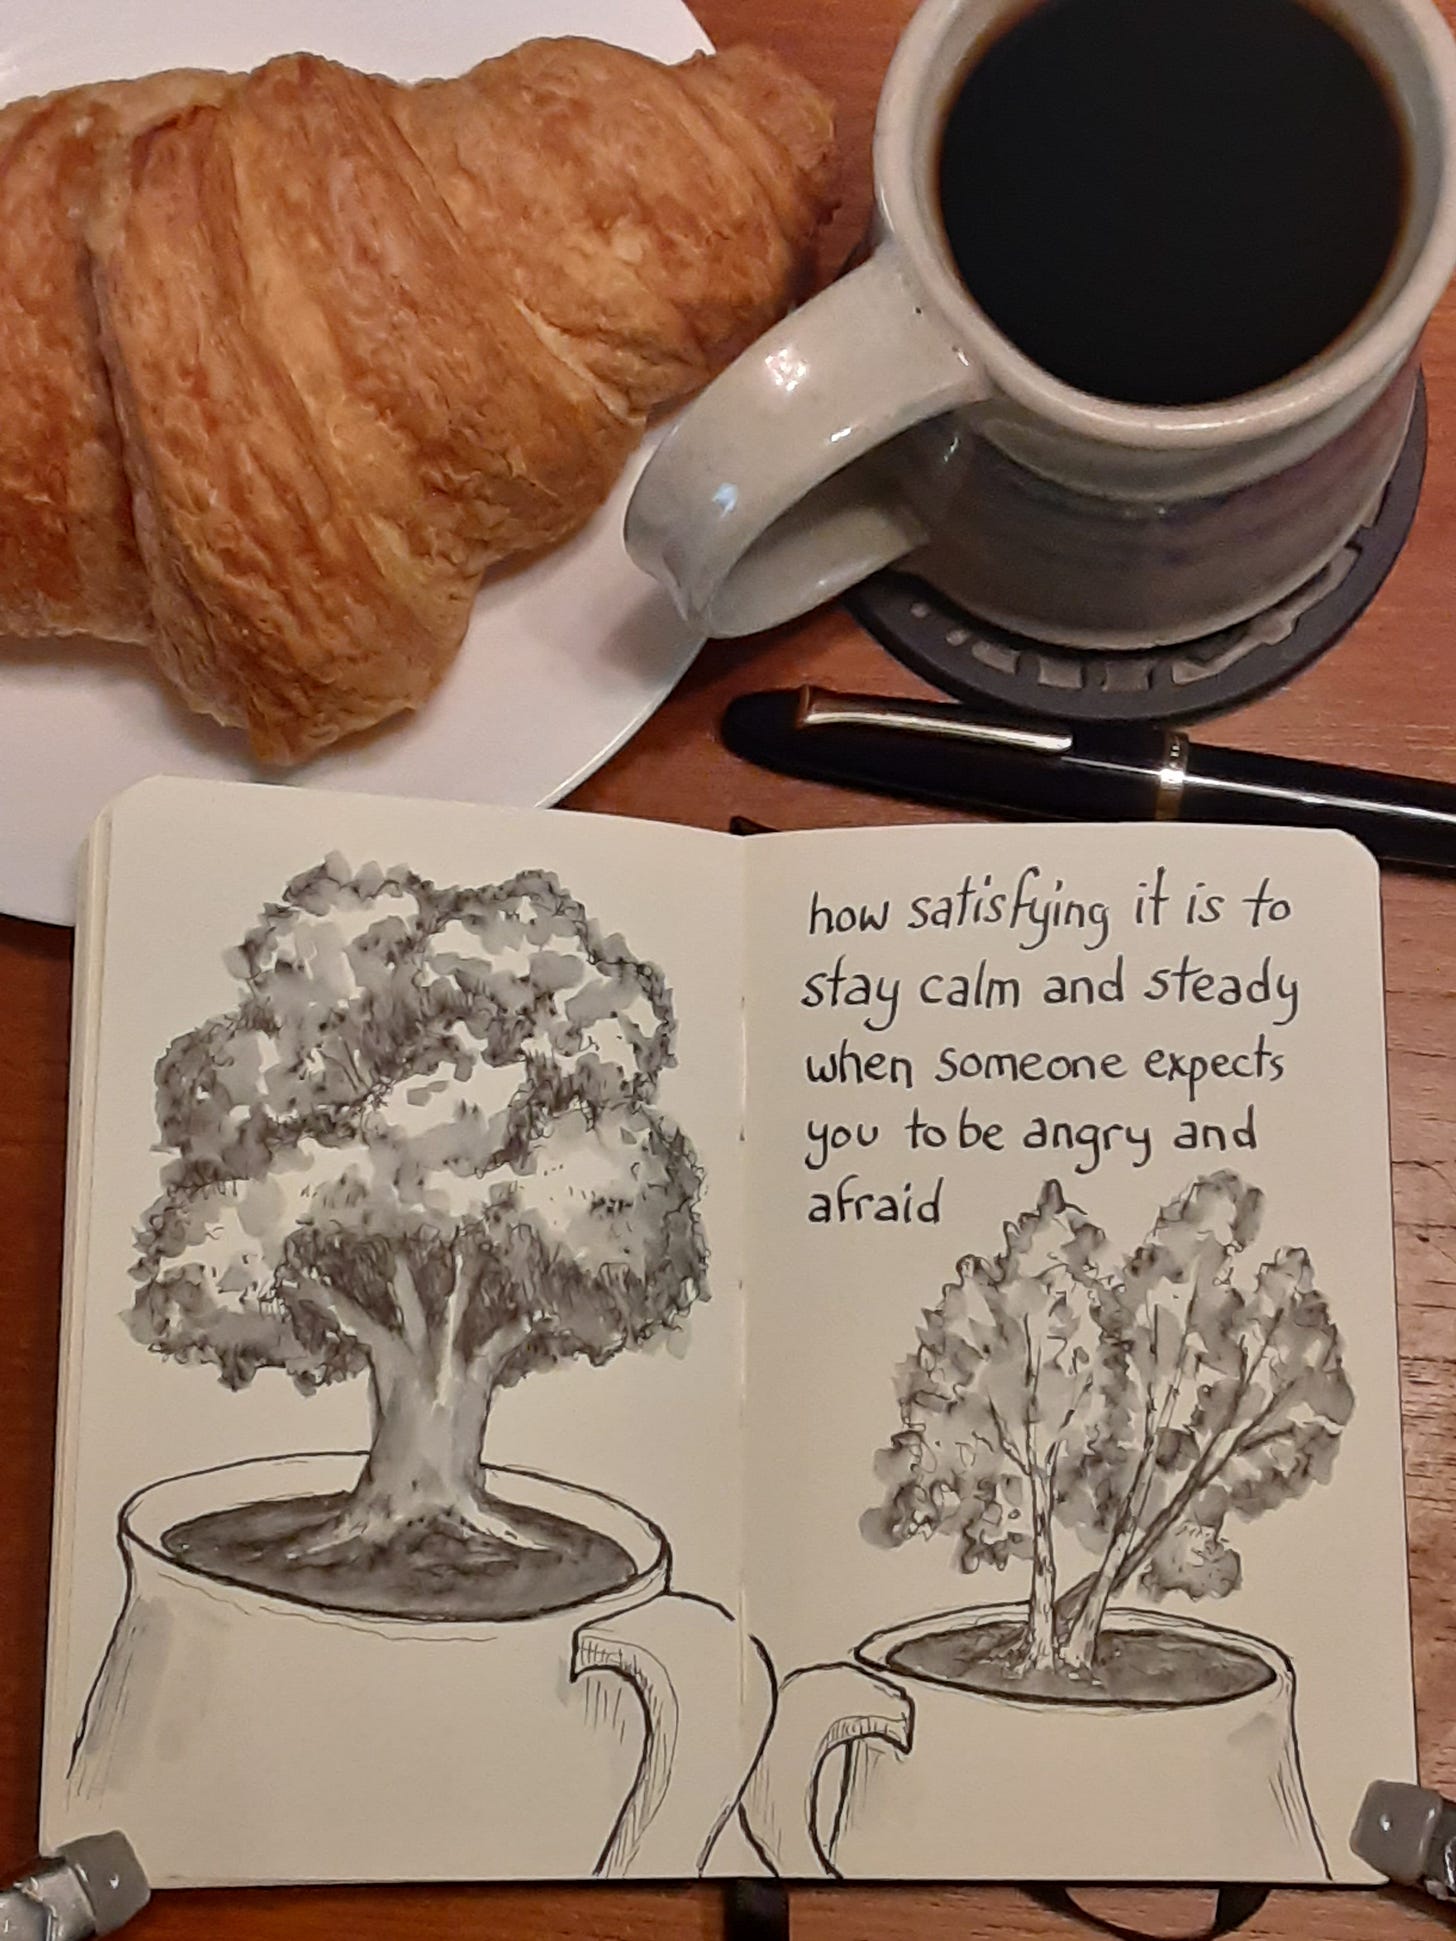 how satisfying it is to
stay calm and steady
when someone expects
you to be angry and
afraid